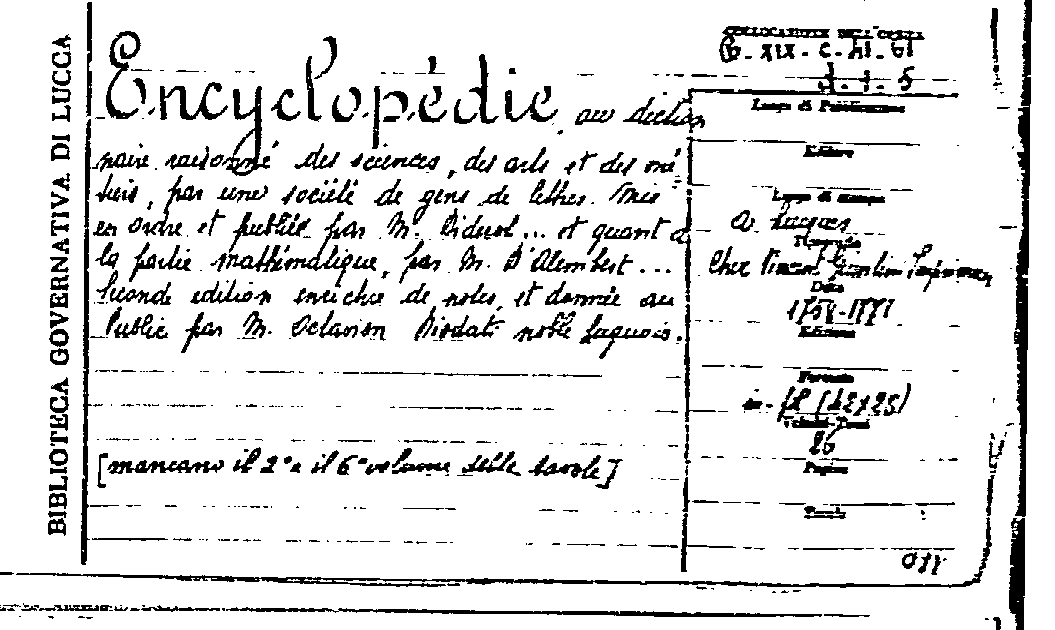 BIBLIOTECA GOVERNATIVA DI LUCCA
Encyclopédie ou diction
naire raisonné des sciences, des arts et des mé
tiers, par une société de gens de lettres. Mis
en ordre et publié par M. Diderot... et quant à
la partie mathématique, par M. D'Alembert...
Seconde edition enrichie de notes, et donnée au
Public par M. Octavien Diodati noble Luquois.
[mancano il 2° e il 6° volume delle tavole]
COLLOCAZIONE DELL'OPERA
Luogo di Pubblicazione
Editore
Luogo di stampa
a Lucques
Tipografo
Chez Vincent Giuntini Imprimeur
Data
1758-1771
Edizione
Formato
in-fol (42x25)
Volumi-Tomi
26
Pagine
Tavole